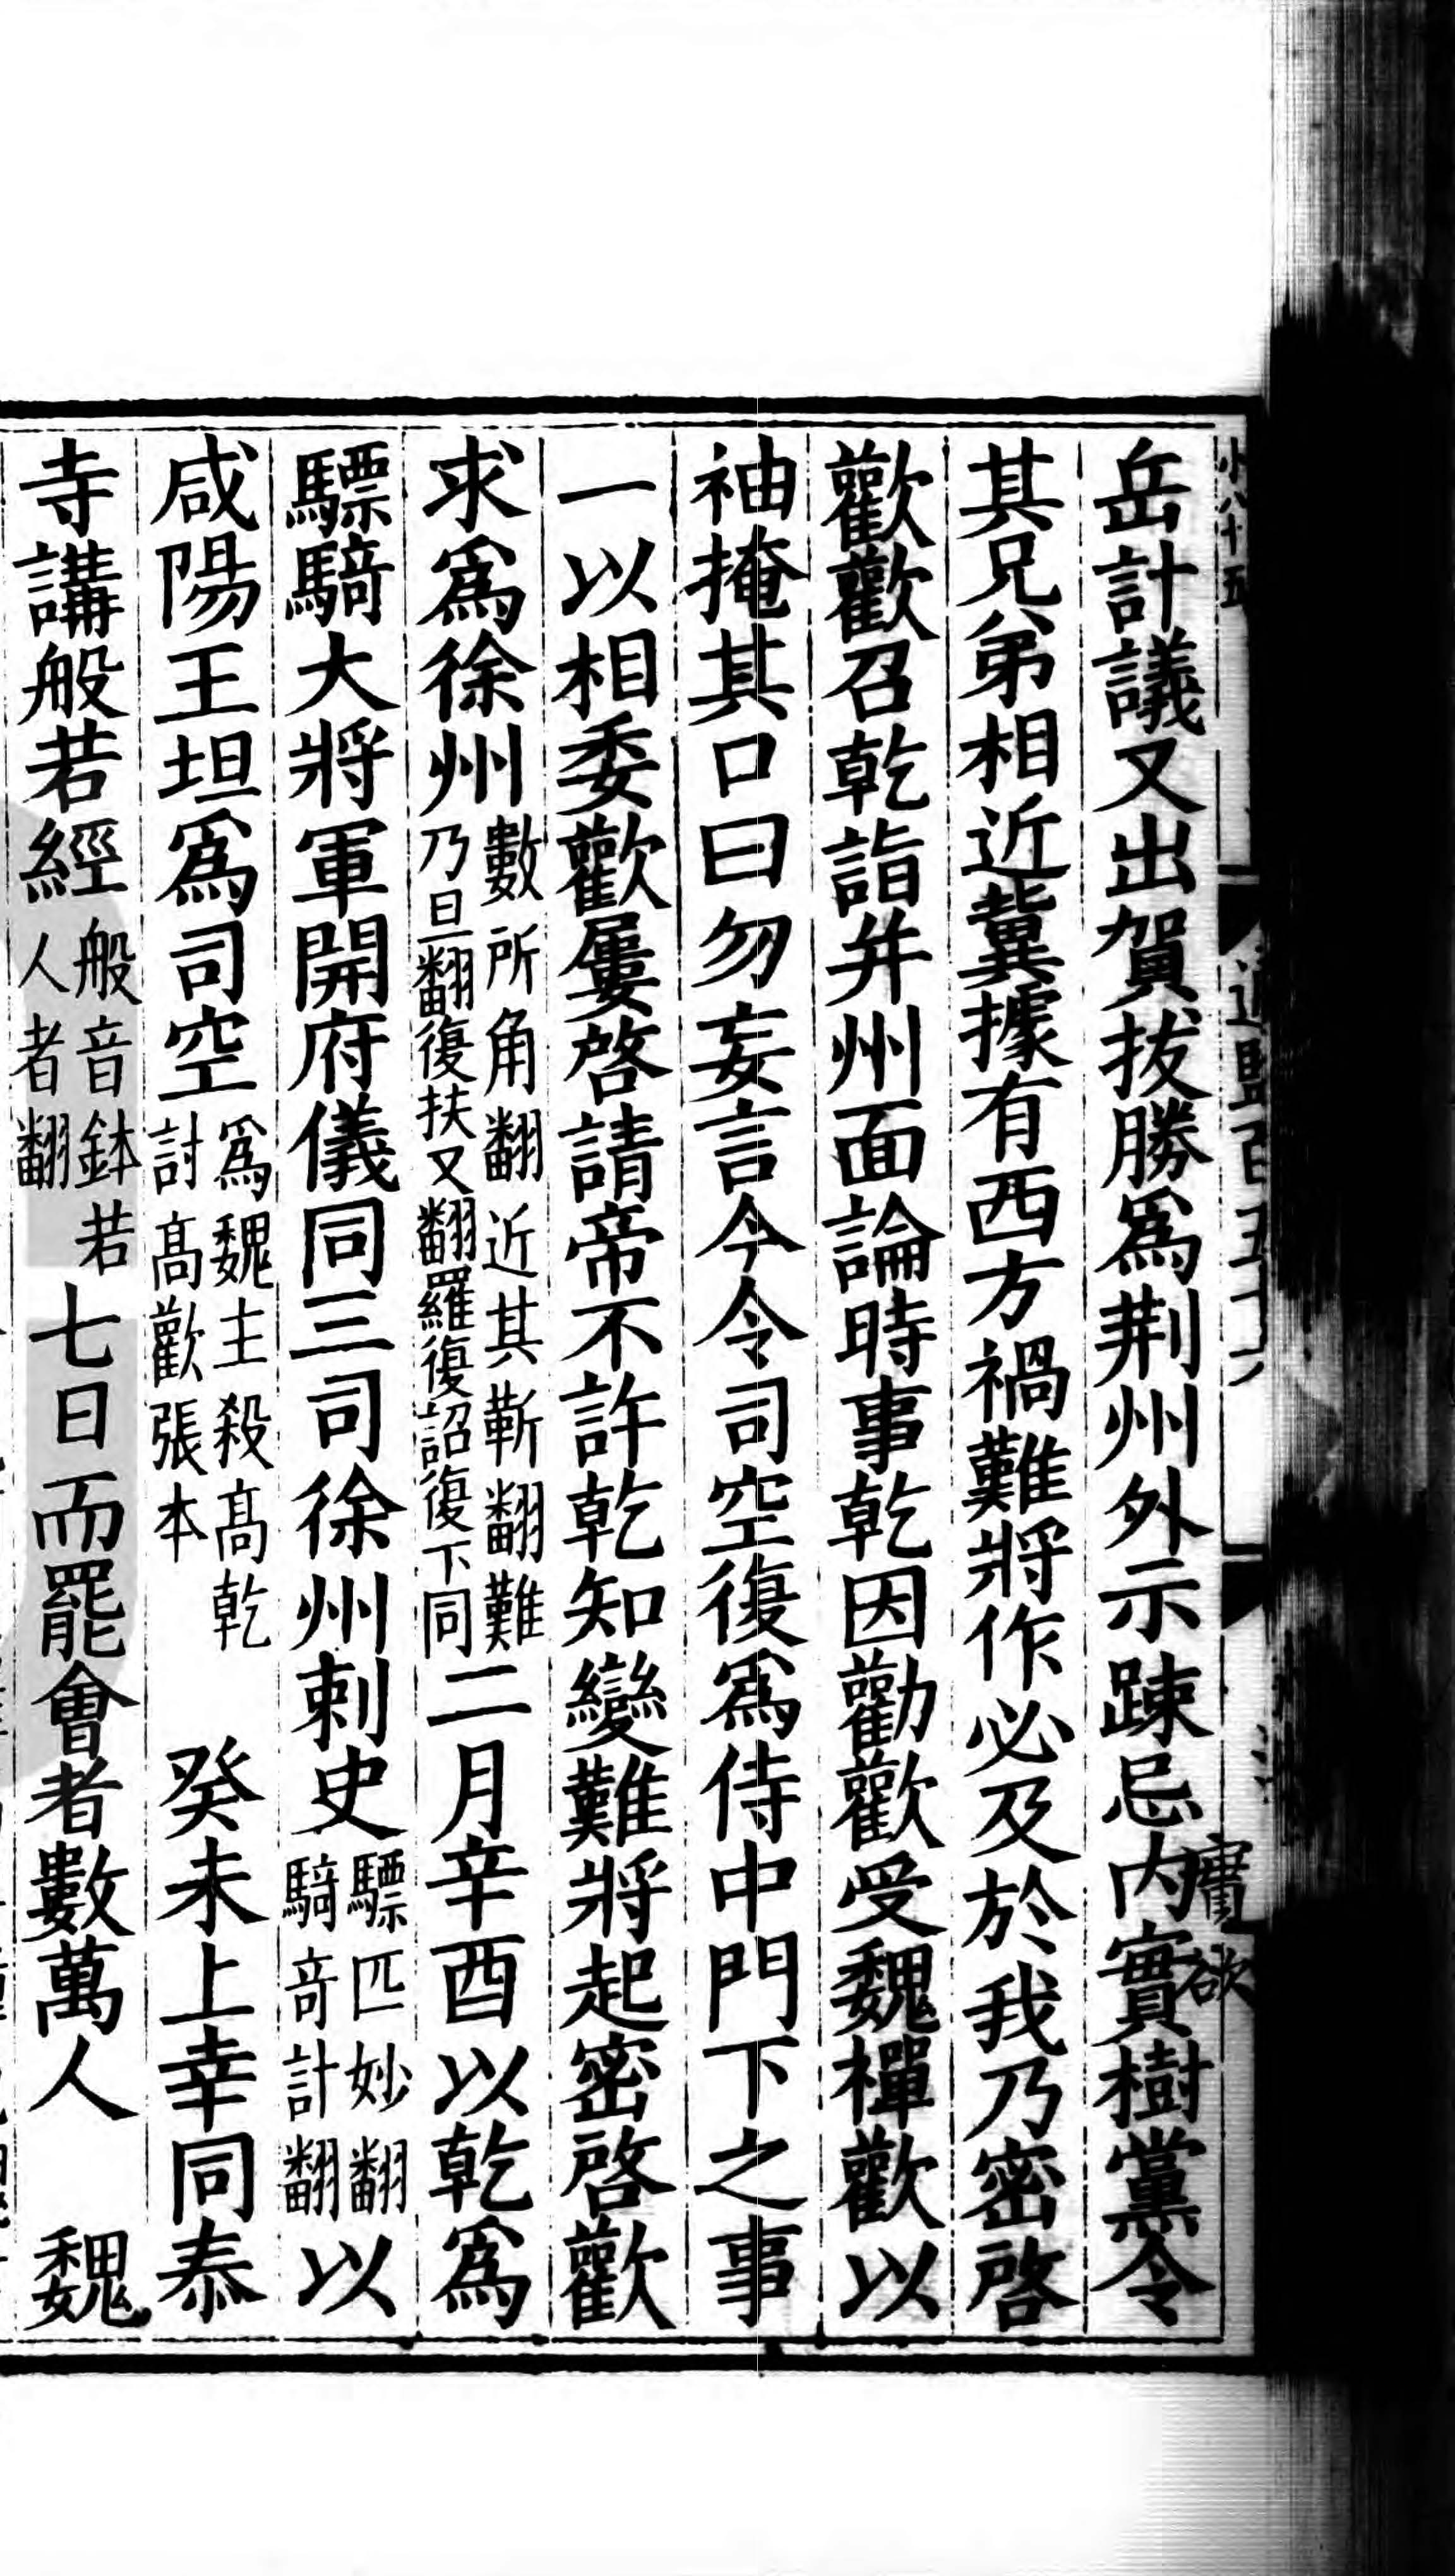 岳計議又出賀拔勝爲荆州外示踈忌内實樹黨令
其兄弟相近冀據有西方禍難將作必及於我乃密啓
歡歡召乾詣并州面論時事乾因勸歡受魏禪歡以
袖掩其口曰勿妄言今令司空復爲侍中門下之事
一以相委歡屢啓請帝不許乾知變難將起密啓歡
求爲徐州數所角翻近其靳翻難乃旦翻復扶又翻羅復詔復下同二月辛酉以乾爲
驃騎大將軍開府儀同三司徐州刺史驃匹妙翻騎奇計翻以
咸陽王坦爲司空爲魏主殺高乾討高歡張本癸未上幸同泰
寺講般若經般音鉢若人者翻七日而罷會者數萬人魏